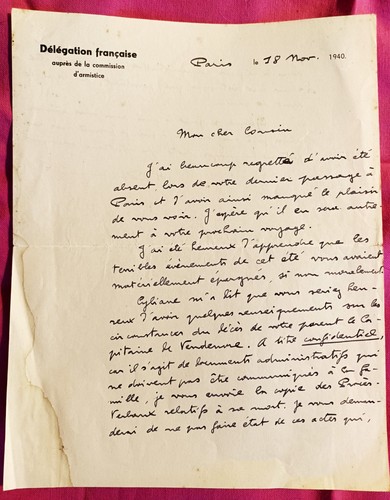 Délégation française
auprès de la commission
d'armistice
Paris le 18 Nov. 1940.
Mon cher Cousin
J'ai beaucoup regretté d'avoir été
absent, lors de votre dernier passage à
Paris et d'avoir ainsi manqué le plaisir
de vous voir. J'espère qu'il en sera autre-
ment à votre prochain voyage.
J'ai été heureux d'apprendre que les
terribles événements de cet été vous avaient
matériellement épargnés, si non moralement.
m'a dit que vous seriez heu-
reux d'avoir quelques renseignements sur les
circonstances du décès de votre parent le Ca-
pitaine de Vendeuvre. A titre confidentiel,
car il s'agit de documents administratifs qui
ne doivent pas être communiqués à la fa-
mille, je vous envoie la copie des Procès-
Verbaux relatifs à sa mort. Je vous deman-
derai de ne pas faire état de ces actes qui,